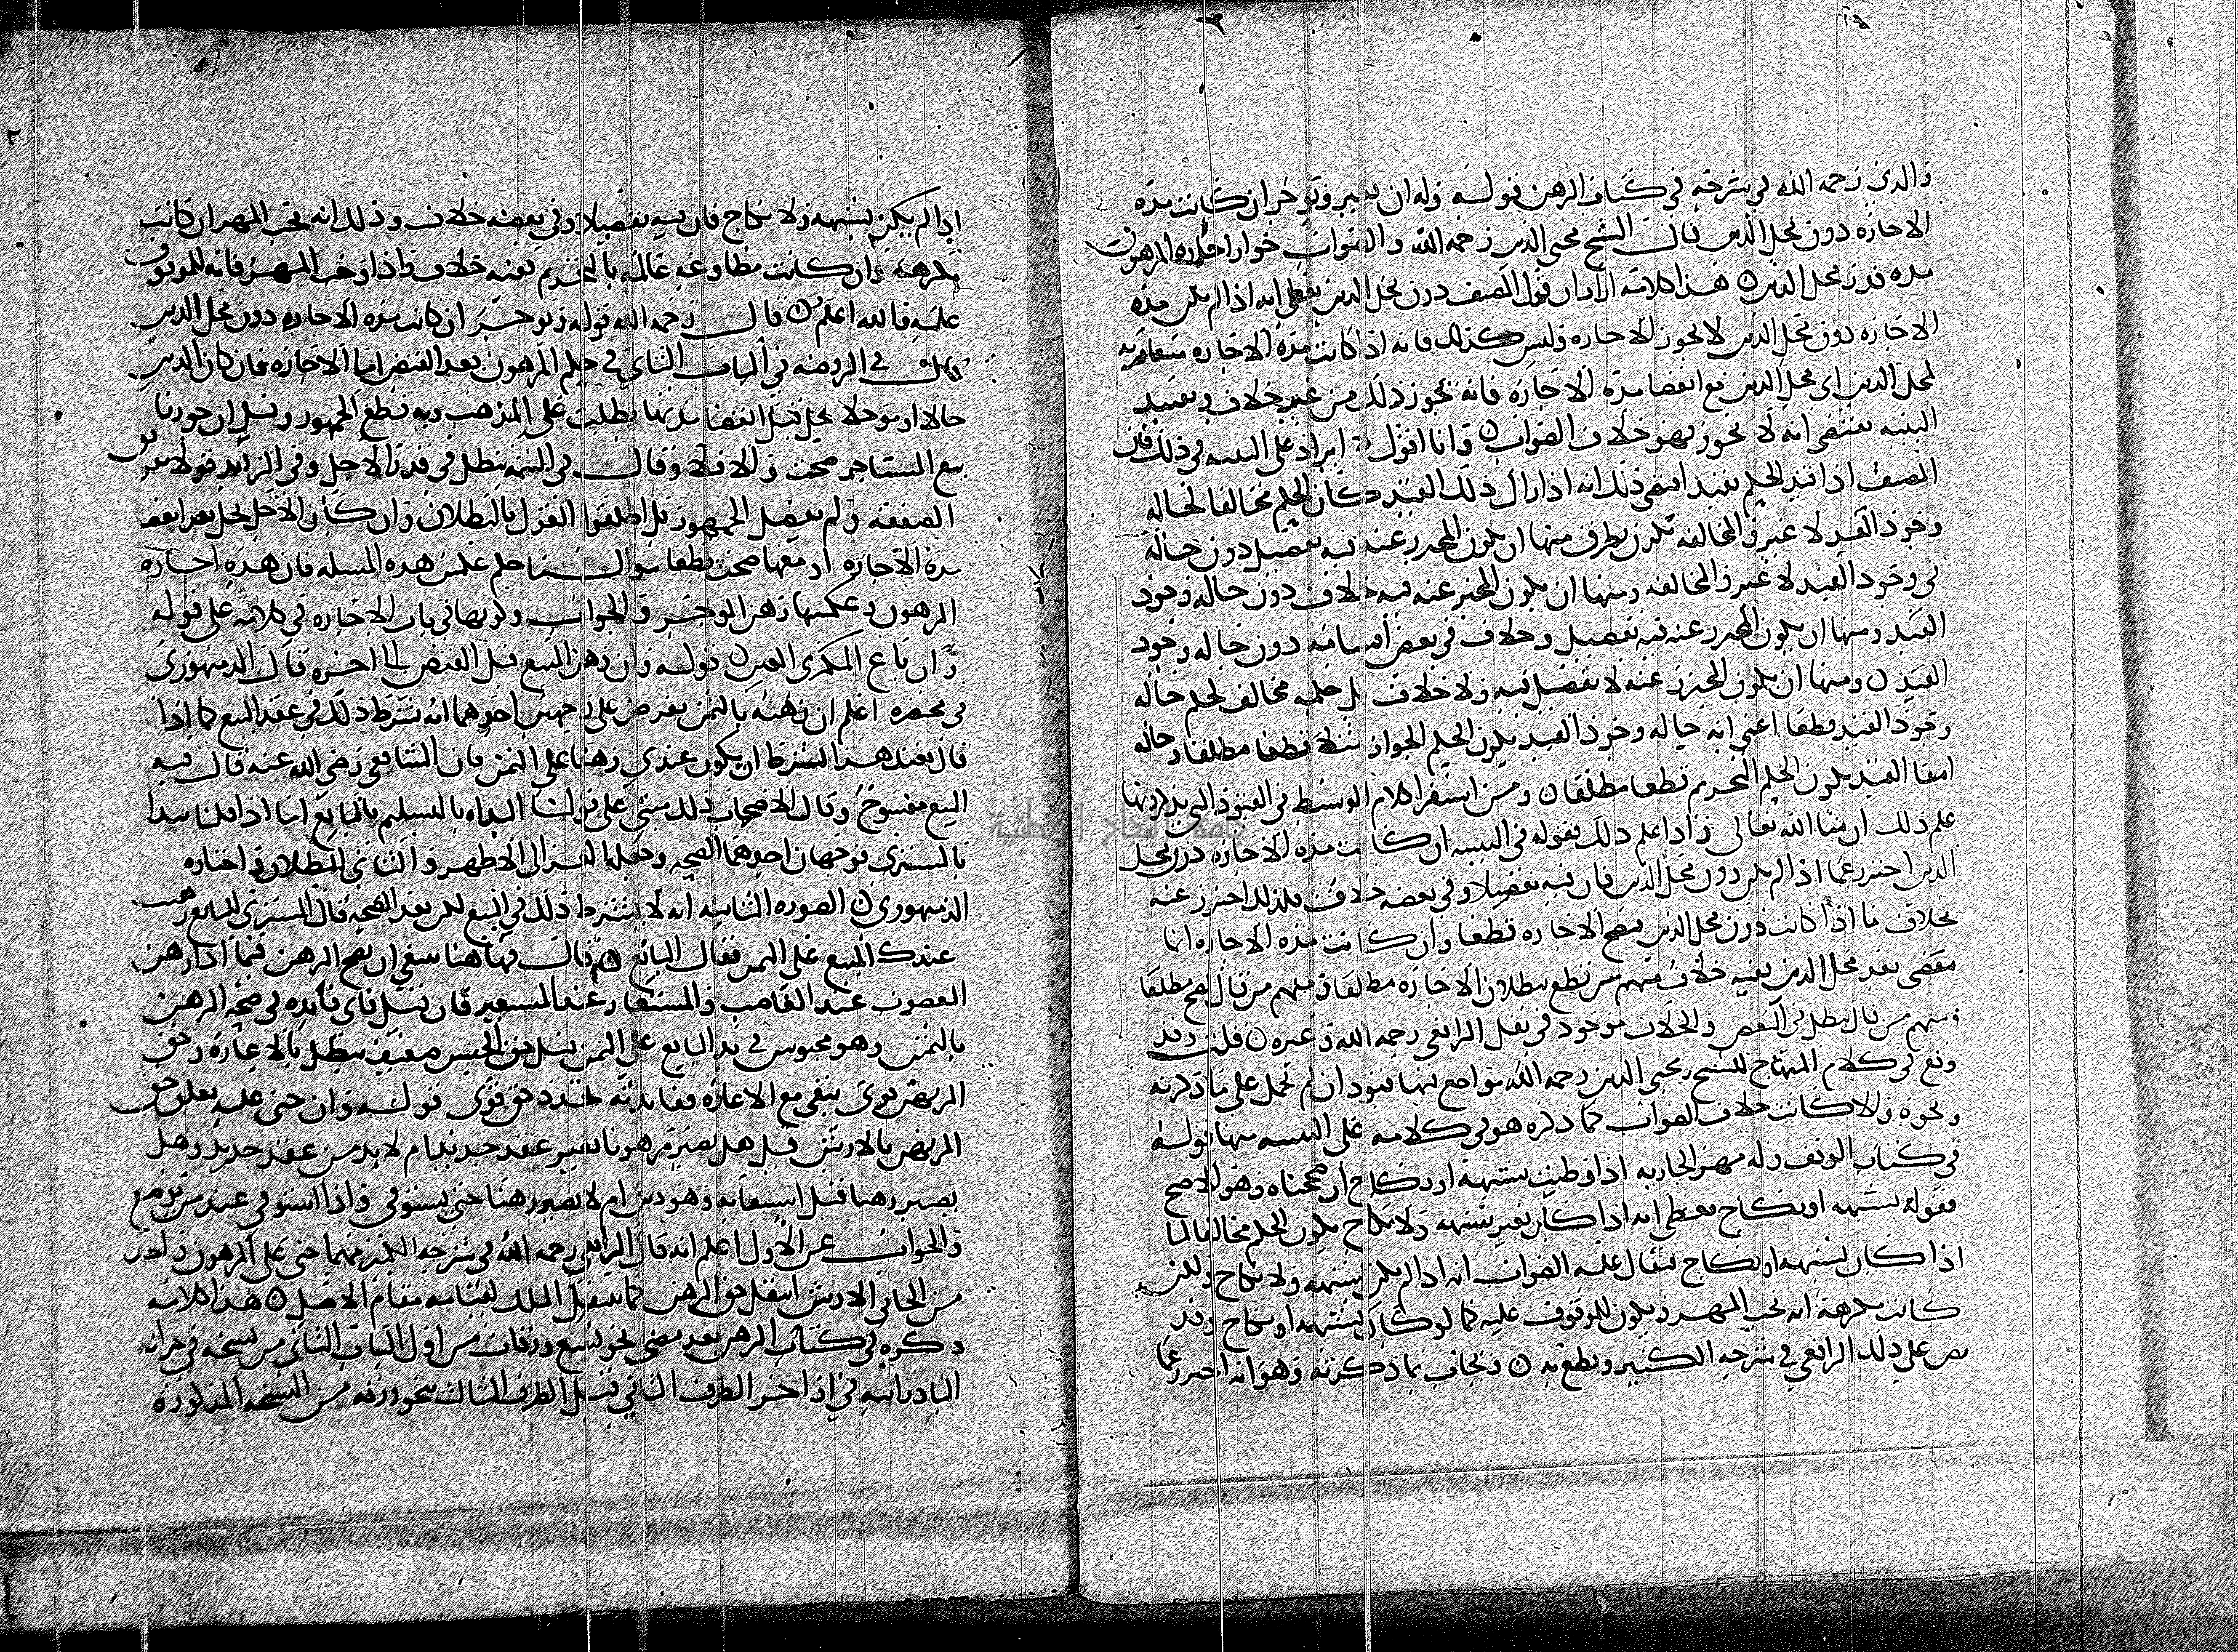 والدي رحمه الله في شرحه في كتاب الرهن قوله وله ان يعير ويؤجر ان كانت مدة
الاجازه دون محل الدين قال الشيخ محيى الدين رحمه الله والصواب جواز اجارة المرهون
مده قدر محل الدين هذا كلامه اراد ان قول المصنف دون محل الدين يعطي انه اذا لم يكن مدة
الاجازه دون محل الدين لا يجوز الاجاره وليس كذلك فانه اذا كانت مدة الاجاره
لمحل الدين اي محل الدين مع انقضا مدة الاجازه فانه يجوز ذلك من غير خلاف وتقييد
التنبيه يقتضي انه لا يجوز وهو خلاف الصواب وانا اقول لا ايراد على التنبيه في ذلك فان
المصنف اذا قيد الحكم بقيد اقتضى ذلك انه اذا زال ذلك القيد كان الحكم مخالفا لحاله
وجود القيد لا غير والمخالفه تكون بطرق منها ان يكون المحترز عنه فيه تفصيل دون حالة
في وجود القيد لا غير والمخالفه ومنها ان يكون المحترز عنه فيه خلاف دون حاله وجود
القيد ومنها ان يكون المحترز عنه فيه تفصيل وخلاف في بعض اقسامه دون حاله وجود
القيد ومنها ان يكون المحترز عنه لا تفصيل فيه ولا خلاف بل حكمه مخالف لحكم حاله
وجود القيد قطعا اعني انه حاله وجود القيد يكون الحكم الجواز قطعا مطلقا وحاله
انتفا القيد يكون الحكم التحريم قطعا مطلقا ومن استقرا كلام الوسيط في القيود التي يذكرها
علم ذلك ان شا الله تعالى واذا علم ذلك فقوله في التنبيه ان كانت مده الاجازه دون محل
الدين احترز عما اذا لم يكن دون محل الدين فان فيه تفصيلا وفي بعضه خلاف فلذلك احترز عنه
بخلاف ما اذا كانت دون محل الدين فتصح الاجاره قطعا وان كانت مدة الاجاره انما
تنقضي بعد محل الدين ففيه خلاف فمنهم من قطع ببطلان الاجازه مطلقا ومنهم من قال يصح مطلقا
ومنهم من قال يبطل في البعض والخلاف موجود في نقل الرافعي رحمه الله وغيره قلت وقد
وقع في كلام المنهاج للشيخ محيي الدين رحمه الله مواضع فيها قيود ان لم تحمل على ما ذكرته
ونحوه والا كانت خلاف الصواب كما ذكره هو في كلامه على التنبيه منها قوله
في كتاب الوقف وله مهر الجاريه اذا وطيت بشبهة او نكاح ان صححناه وهو الاصح
فقوله بشبهه او نكاح يعطي انه اذا كان بغير شبهه ولا نكاح يكون الحكم مخالفا لما
اذا كان بشبهه او نكاح فيقال عليه الصواب انه اذا لم يكن بشبهه ولا نكاح ولكن
كانت مكرهة انه يجب المهر ويكون للموقوف عليه كما لو كان بشبهه او نكاح وقد
نص على ذلك الرافعي في شرحه الكبير وقطع به ويجاب بما ذكرته وهو انه احترز عما
اذا لم يكن بشبهه ولا نكاح فان فيه تفصيلا وفي بعضه خلاف وذلك انه يجب المهر ان كانت
مكرهة وان كانت مطاوعه عالمه بالتحريم ففيه خلاف واذا وجب المهر فانه للموقوف
عليه فالله اعلم قال رحمه الله قوله ويؤجر ان كانت مدة الاجاره دون محل الدين
قال في الروضه في الباب الثاني في حكم المرهون بعد القبض اما الاجازه فان كان الدين
حالا او مؤجلا يحل قبل انقضا مدتها بطلت على المذهب وبه قطع الجمهور وقيل ان جوزنا
بيع المستاجر صحت والا فلا وقال في التتمه يبطل في قدر الاجل وفي الزايد قولا تفريق
الصفقه ولم يفصل الجمهور بل اطلقوا القول بالبطلان وان كان الاجل يحل بعد انقضا
مدة الاجازه او معها صحت قطعا سوال ما حكم عكس هذه المسله فان هذه اجازه
المرهون وعكسها رهن الموجر والجواب ذكر بها في باب الاجاره في كلامه على قوله
وان باع المكري العين قوله وان رهن المبيع قبل القبض الى اخره قال الدمنهوري
في مختصره اعلم ان رهنه بالثمن يفرض على وجهين احدهما انه شرط ذلك في عقد البيع كما اذا
قال بعتك هذا بشرط ان يكون عندي رهنا على الثمن فان الشافعي رضي الله عنه قال فيه
البيع مفسوخ وقال الاصحاب ذلك مبني على قولنا البداه بالتسليم بالبايع اما اذا قلنا يبدا
بالمشتري فوجهان احدهما الصحه وجعله الغزالى الاظهر والثاني البطلان واختاره
الدمنهوري الصوره الثانيه انه لا يشترط ذلك في البيع لكن بعد الصحه قال المشتري للبايع رهنت
عندك المبيع على الثمن فقال البائع قال فهاهنا ينبغي ان يصح الرهن فيما اذا رهن
المغصوب عند الغاصب والمستعار عند المستعير فان قيل فاي فايده في صحه الرهن
بالثمن وهو محبوس في يد البايع على الثمن قيل حق الحبس ضعيف يبطل بالاعارة وحق
المرتهن قوي يبقى مع الاعاره ففايدته تجدد حق قوي قوله وان جنى عليه تعلق حق
المرتهن بالارش قيل هل يصير مرهونا بغير عقد جديد ام لا بد من عقد جديد وهل
يصير رهنا قبل استيفايه وهو دين ام لا يصير رهنا حتى يستوفى واذا استوفي عند من يوضع
والجواب عن الاول اعلم انه قال الرافعي رحمه الله في شرحه الكبير مهما جنى على المرهون واخذ
من الجاني الارش انتقل حق الرهن كما ينتقل الملك لقيامه مقام الاصل هذا كلامه
ذكره في كتاب الرهن بعد مضي نحو تسع ورقات من اول الباب الثاني من نسخه في خزانه
البادرائيه في اذا اخر الطرف الثاني قبل الطرف الثالث بنحو ورقه من النسخه المذكورة